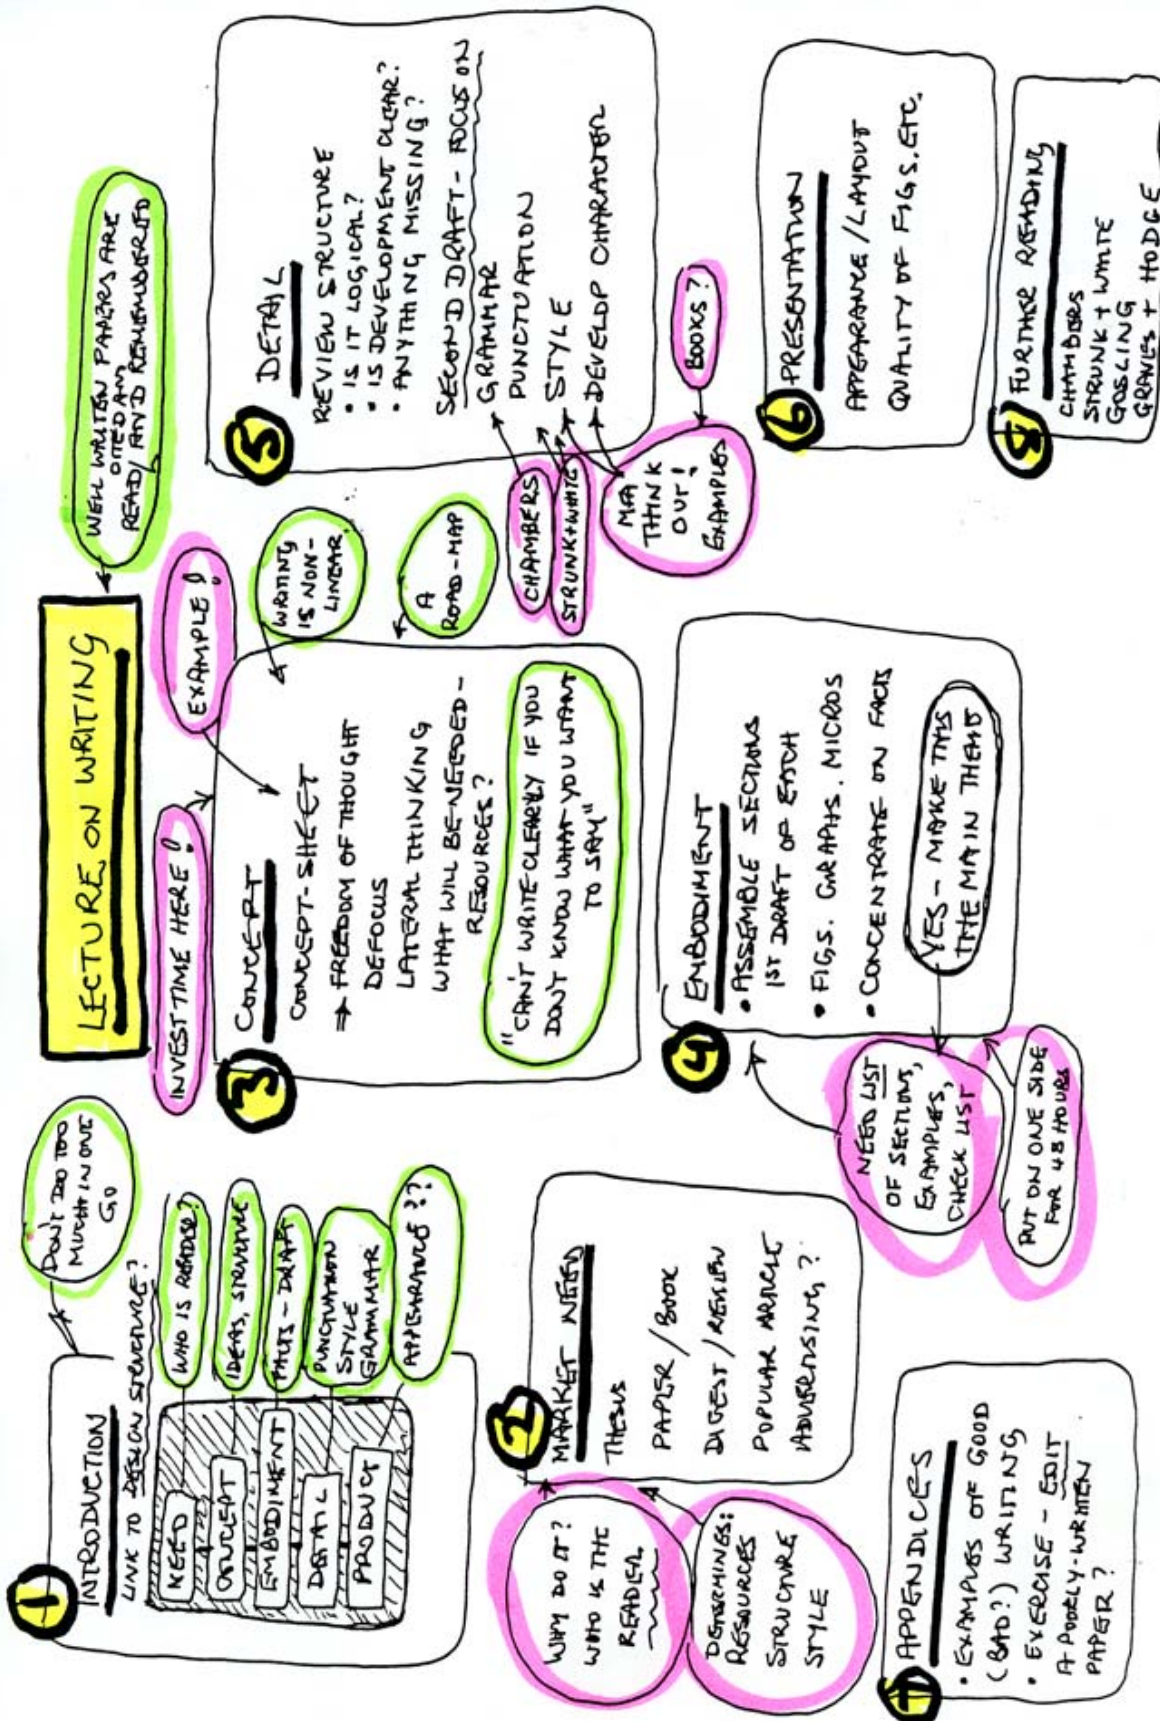 LECTURE ON WRITING
WELL WRITTEN PAPERS ARE
CITED AND
READ, AND REMEMBERED
DON'T DO TOO
MUCH IN ONE
GO
1
INTRODUCTION
LINK TO DESIGN STRUCTURE?
NEED
CONCEPT
EMBODIMENT
DETAIL
PRODUCT
WHO IS READER?
IDEAS, STRUCTURE
FACTS - DRAFT
PUNCTUATION
STYLE
GRAMMAR
APPEARANCE??
2
MARKET NEED
THESIS
PAPER / BOOK
DIGEST / REVIEW
POPULAR ARTICLE
ADVERTISING?
WHY DO IT?
WHO IS THE
READER.
DETERMINES:
RESOURCES
STRUCTURE
STYLE
INVEST TIME HERE!
EXAMPLE!
3
CONCEPT
CONCEPT-SHEET
⇒ FREEDOM OF THOUGHT
DEFOCUS
LATERAL THINKING
WHAT WILL BE NEEDED -
RESOURCES?
"CAN'T WRITE CLEARLY IF YOU
DON'T KNOW WHAT YOU WANT
TO SAY"
WRITING
IS NON-
LINEAR
A
ROAD-MAP
4
EMBODIMENT
• ASSEMBLE SECTIONS
1ST DRAFT OF EACH
• FIGS. GRAPHS. MICROS
• CONCENTRATE ON FACTS
YES - MAKE THIS
THE MAIN THEME
NEED LIST
OF SECTIONS,
EXAMPLES,
CHECK LIST
PUT ON ONE SIDE
FOR 48 HOURS
5
DETAIL
REVIEW STRUCTURE
• IS IT LOGICAL?
• IS DEVELOPMENT CLEAR?
• ANYTHING MISSING?
SECOND DRAFT - FOCUS ON
GRAMMAR
PUNCTUATION
STYLE
DEVELOP CHARACTER
CHAMBERS
STRUNK + WHITE
MA
THINK
OUT!
EXAMPLES
BOOKS?
6
PRESENTATION
APPEARANCE / LAYOUT
QUALITY OF FIGS. ETC.
7
APPENDICES
• EXAMPLES OF GOOD
(BAD?) WRITING
• EXERCISE - EDIT
A POORLY-WRITTEN
PAPER?
8
FURTHER READING
CHAMBERS
STRUNK + WHITE
GOSLING
GRAVES + HODGE